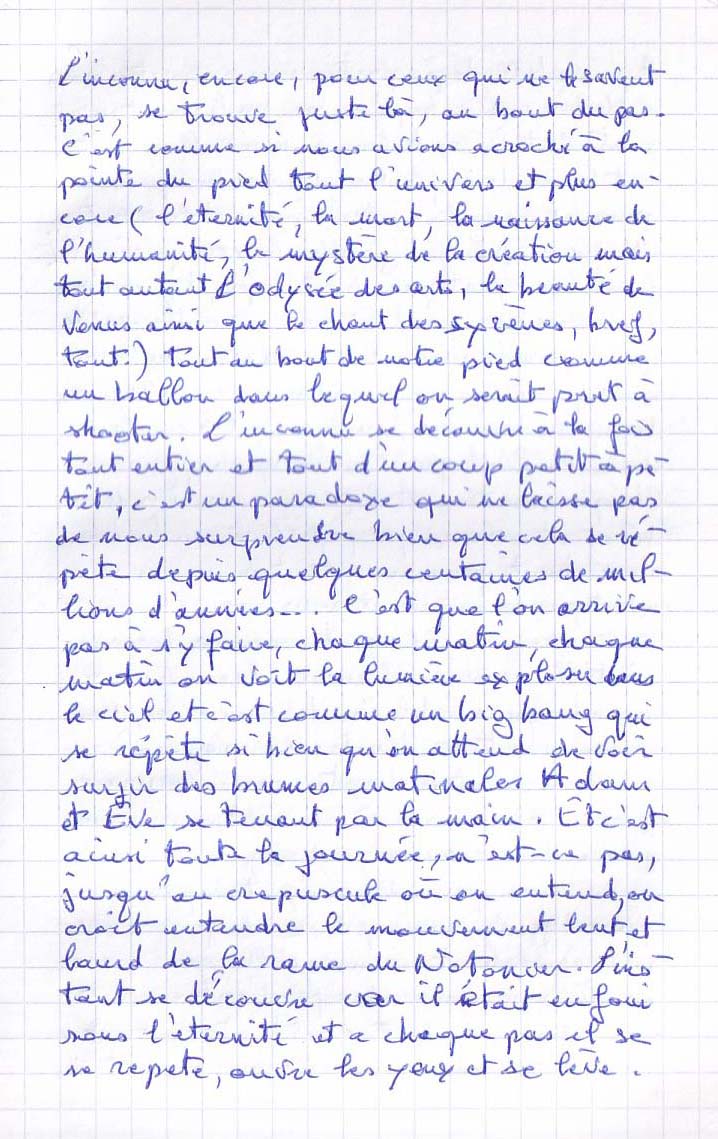 L'inconnu, encore, pour ceux qui ne le savent
pas, se trouve juste là, au bout du pas.
C'est comme si nous avions acroché à la
pointe du pied tout l'univers et plus en-
core (l'éternité, la mort, la naissance de
l'humanité, le mystère de la création mais
tout autant l'odysée des arts, la beauté de
Venus ainsi que le chant des syrènes, bref,
tout.) tout au bout de notre pied comme
un ballon dans lequel on serait pret à
shooter. L'inconnu se découvre à la fois
tout entier et tout d'un coup petit à pe-
tit, c'est un paradoxe qui ne laisse pas
de nous surprendre bien que cela se ré-
pète depuis quelques centaines de mil-
lions d'années... C'est que l'on arrive
pas à s'y faire, chaque matin, chaque
matin on voit la lumière exploser dans
le ciel et c'est comme un big bang qui
se répète si bien qu'on attend de voir
surgir des brumes matinales Adam
et Eve se tenant par la main. Et c'est
ainsi toute la journée, n'est-ce pas,
jusqu'au crepuscule où on entend, on
croit entendre le mouvement lent et
lourd de la rame du Notonier. L'ins-
tant se découvre car il était enfoui
sous l'éternité et a chaque pas il se
se repete, ouvre les yeux et se lève.